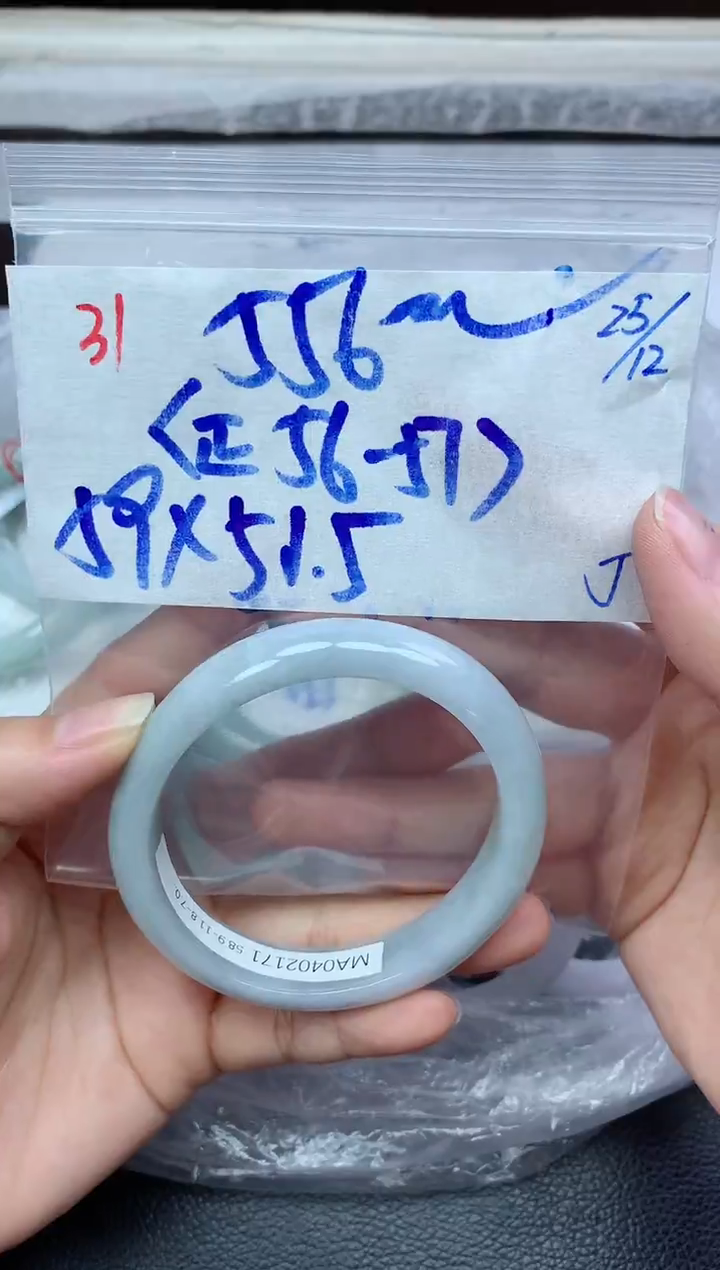 31
J56
25/12
<正 56-57>
59X51.5
J
MA0402171 58.9-11.8-7.0